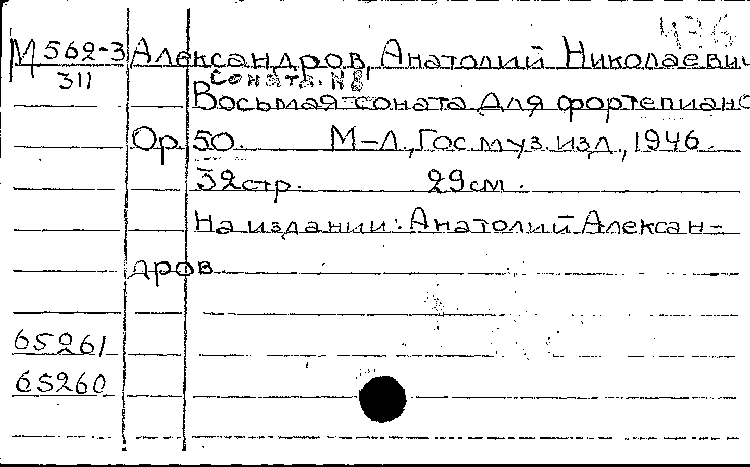 М 562-3 Александров, Анатолий Николаевич
311 Соната. N8
Восьмая соната для фортепиано
Ор. 50. М-Л., Гос. муз. изд., 1946.
32 стр. 29 см.
На издании: Анатолий Алексан-
дров
65261
65260